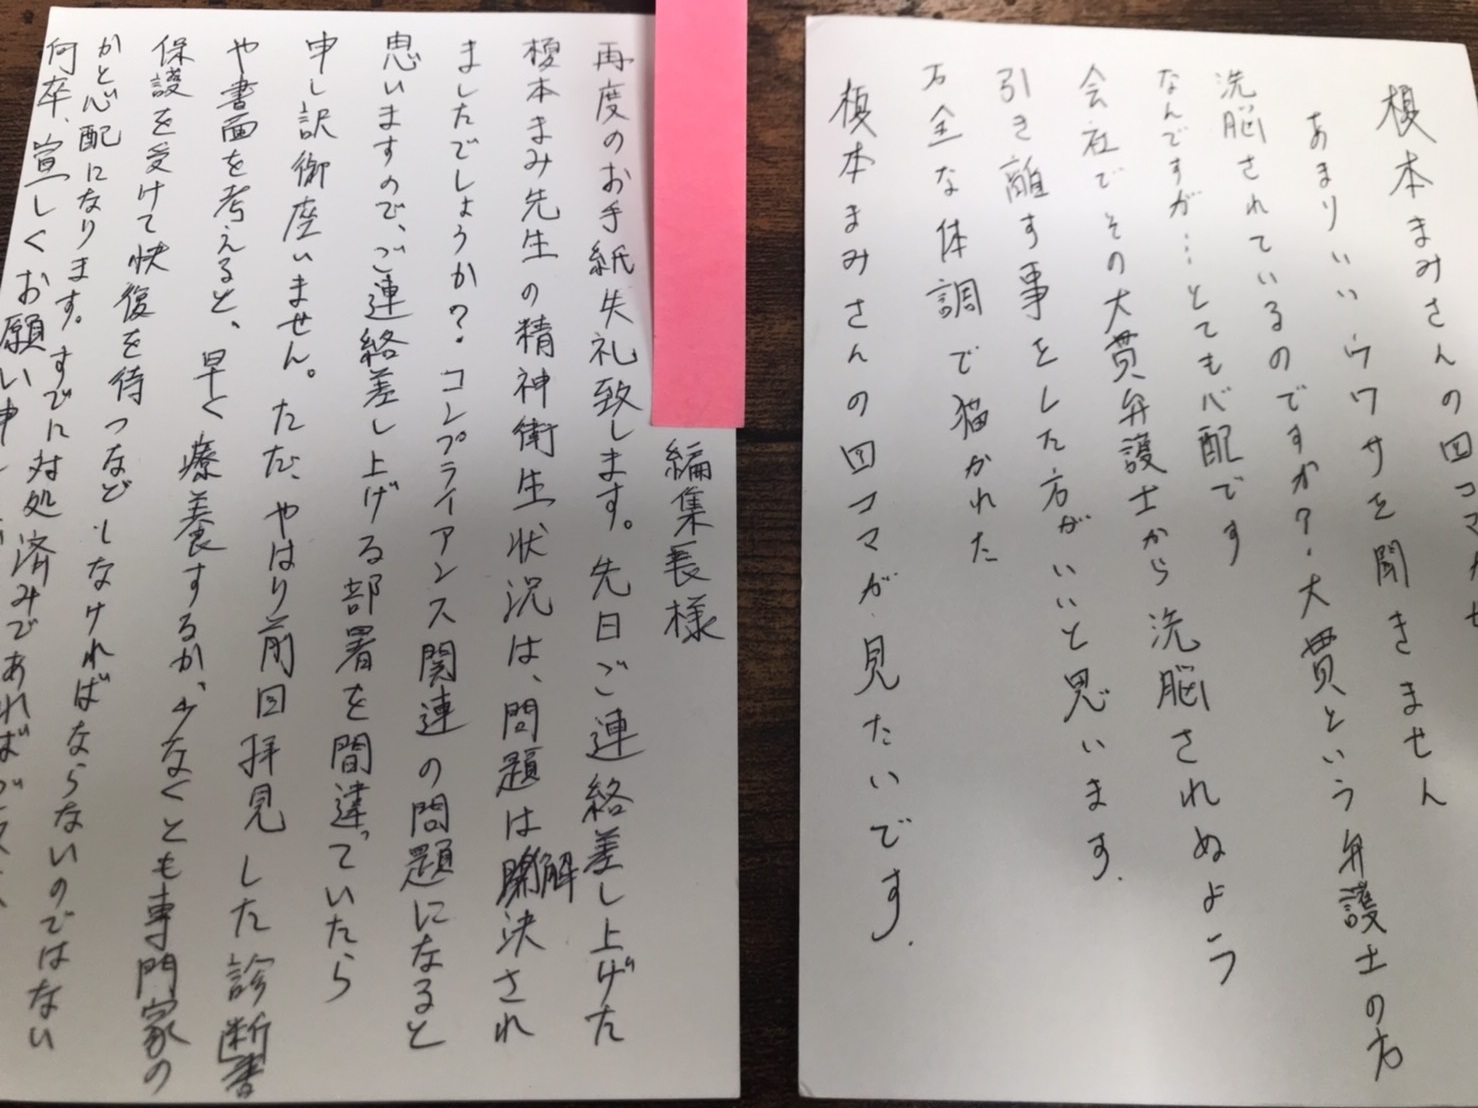 榎本まみさんの四コマ
あまりいいウワサを聞きません
洗脳されているのですか?大貫という弁護士の方
なんですが…とても心配です
会社でその大貫弁護士から洗脳されぬよう
引き離す事をした方がいいと思います.
万全な体調で描かれた
榎本まみさんの四コマが見たいです.
編集長様
再度のお手紙失礼致します。先日ご連絡差し上げた
榎本まみ先生の精神衛生状況は、問題は解決され
ましたでしょうか?コンプライアンス関連の問題になると
思いますので、ご連絡差し上げる部署を間違っていたら
申し訳御座いません。ただ、やはり前回拝見した診断書
や書面を考えると、早く療養するか、少なくとも専門家の
保護を受けて快復を待つなどしなければならないのではない
かと心配になります。すでに対処済みであれば
何卒、宜しくお願い申し